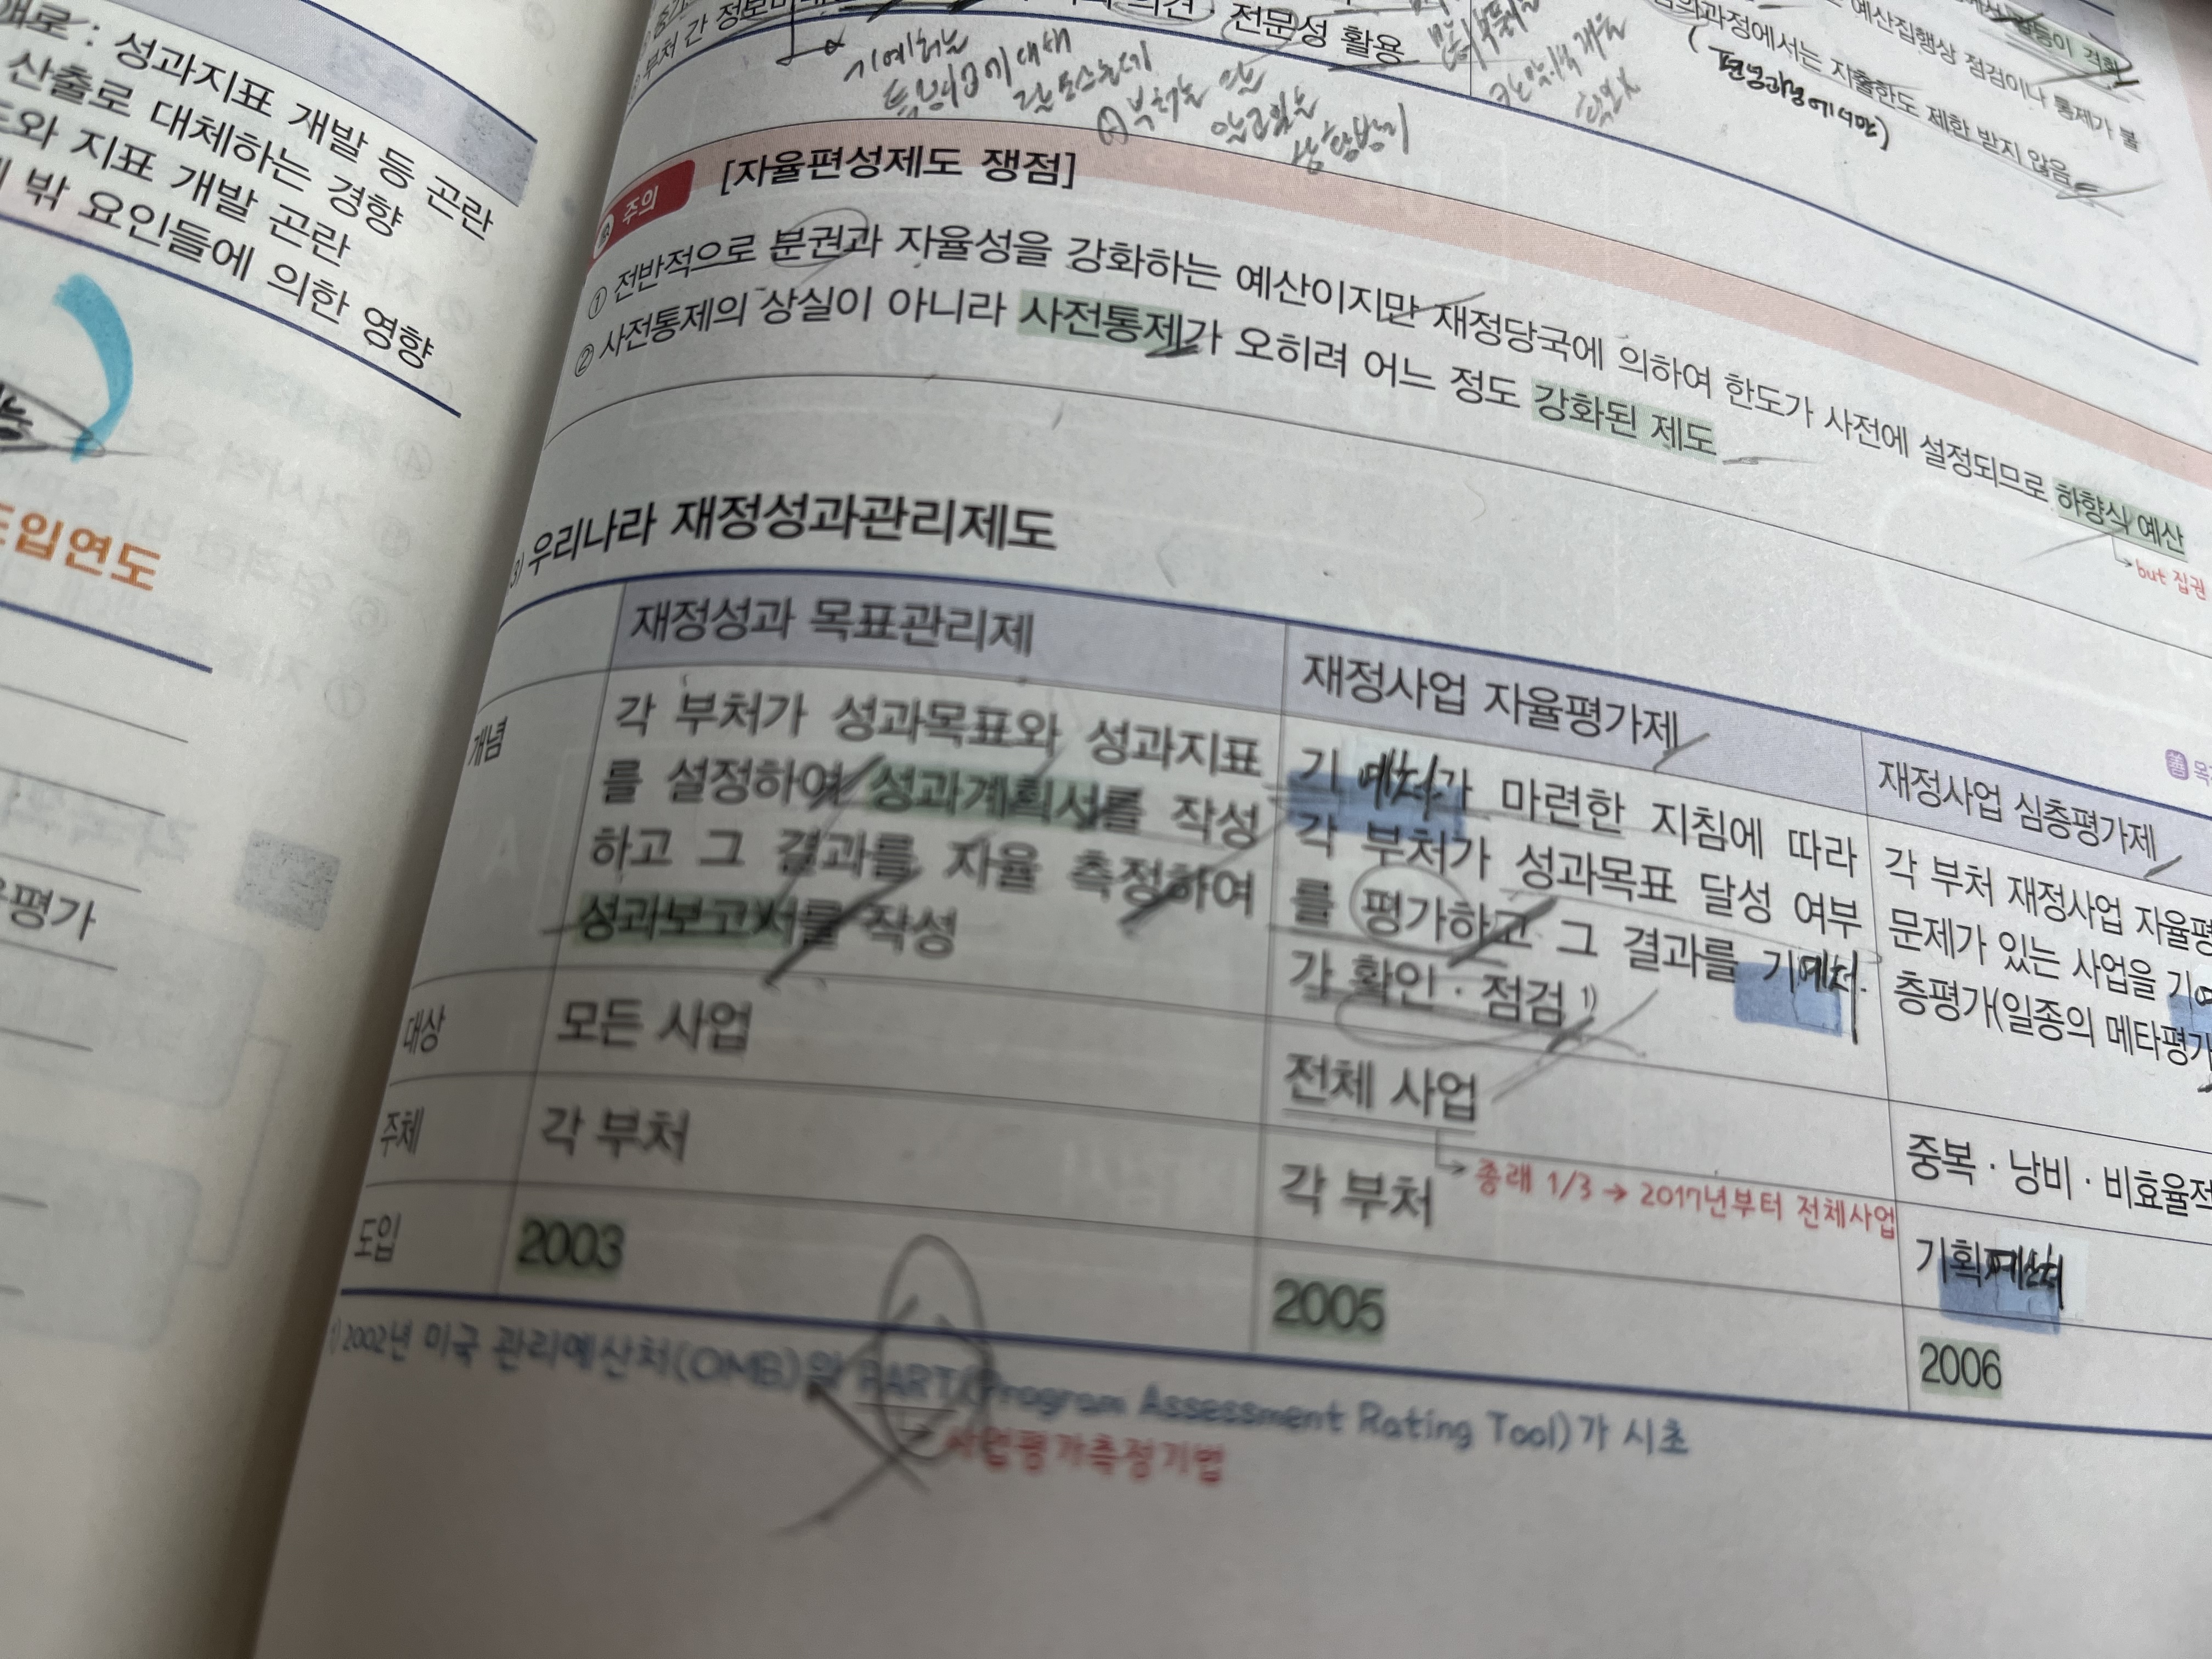 애로 : 성과지표 개발 등 곤란
산출로 대체하는 경향
도와 지표 개발 곤란
밖 요인들에 의한 영향
도입연도
평가
부처 간
의견 · 전문성 활용
기예처는
예산집행상 점검이나 통제가 불
과정에서는 지출한도 제한 받지 않음
(편성과정에서만)
주의 [자율편성제도 쟁점]
① 전반적으로 분권과 자율성을 강화하는 예산이지만 재정당국에 의하여 한도가 사전에 설정되므로 하향식 예산
but 집권
② 사전통제의 상실이 아니라 사전통제가 오히려 어느 정도 강화된 제도
3) 우리나라 재정성과관리제도
재정성과 목표관리제
재정사업 자율평가제
재정사업 심층평가제
개념
각 부처가 성과목표와 성과지표
를 설정하여 성과계획서를 작성
하고 그 결과를 자율 측정하여
성과보고서를 작성
기예처가 마련한 지침에 따라
각 부처가 성과목표 달성 여부
를 평가하고 그 결과를 기예처
가 확인 · 점검 1)
각 부처 재정사업 자율평
문제가 있는 사업을 기예
층평가(일종의 메타평가
대상
모든 사업
전체 사업
종래 1/3 → 2017년부터 전체사업
중복 · 낭비 · 비효율적
주체
각 부처
각 부처
기획예산처
도입
2003
2005
2006
1) 2002년 미국 관리예산처(OMB)의 PART(Program Assessment Rating Tool)가 시초
→ 사업평가측정기법